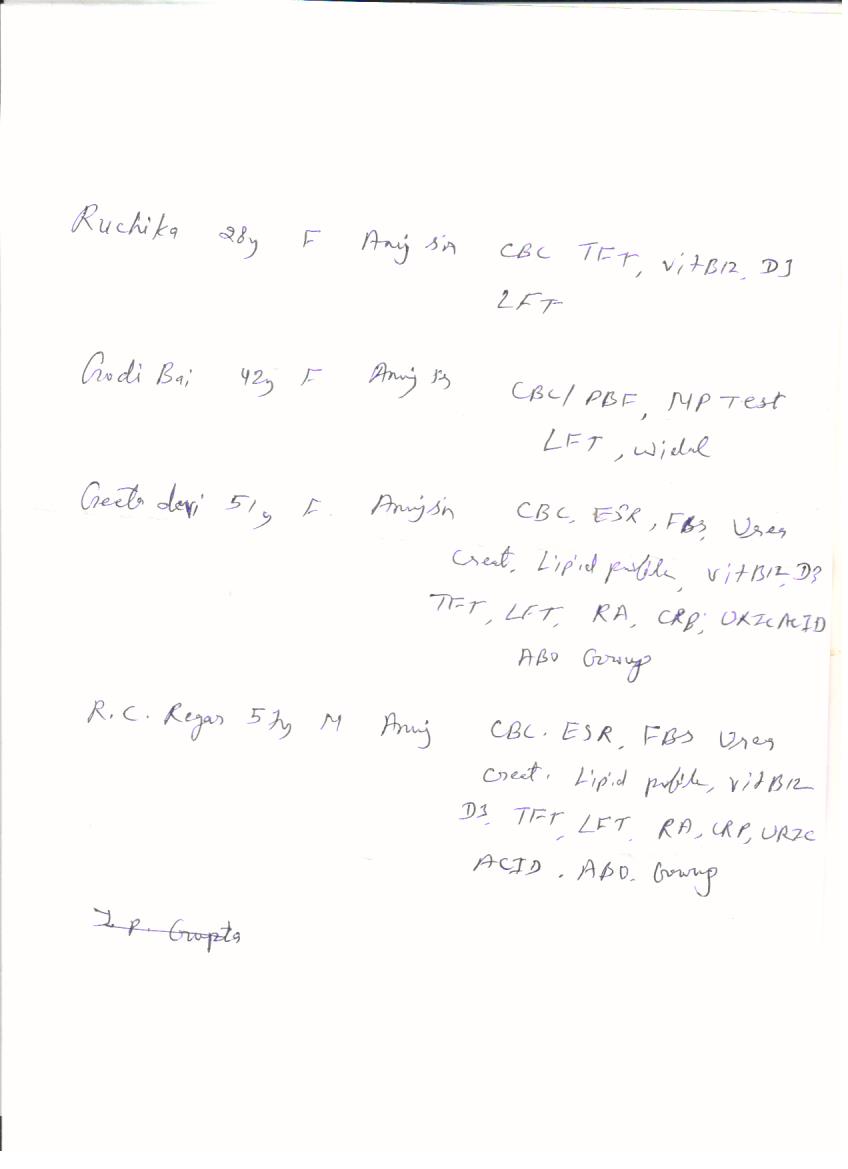 Ruchika 28y F Anuj sir CBC TFT, vitB12, D3
LFT
Godi Bai 42y F Anuj sir CBC/ PBF, MP Test
LFT, widal
Geeta devi 51y F. Anuj sir CBC, ESR, FBS, Urea
Creat. Lipid profile, vitB12, D3
TFT, LFT, RA, CRP, URIC ACID
ABO Group
R.C. Regar 57y M Anuj CBC. ESR, FBS Urea
Creat. Lipid profile, vitB12
D3, TFT, LFT, RA, CRP, URIC
ACID. ABO. Group
I.P. Gupta